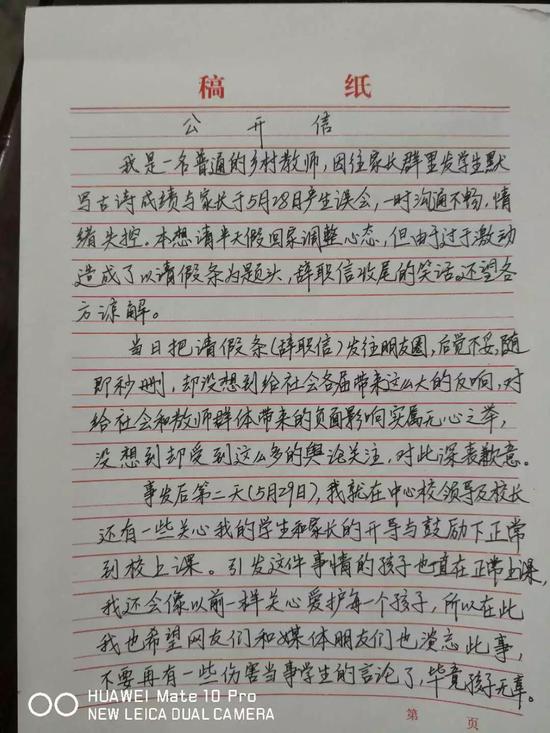 稿 纸
公开信
我是一名普通的乡村教师,因往家长群里发学生默
写古诗成绩与家长于5月28日产生误会,一时沟通不畅,情
绪失控。本想请半天假回家调整心态,但由于过于激动
造成了以请假条为题头,辞职信收尾的笑话,还望各
方谅解。
当日把请假条(辞职信)发往朋友圈,后觉不妥,随
即秒删,却没想到给社会各届带来这么大的反响,对
给社会和教师群体带来的负面影响实属无心之举,
没想到却受到这么多的舆论关注,对此深表歉意。
事发后第二天(5月29日),我就在中心校领导及校长
还有一些关心我的学生和家长的开导与鼓励下正常
到校上课。引发这件事情的孩子也一直在正常上课,
我还会像以前一样关心爱护每一个孩子,所以在此
我也希望网友们和媒体朋友们也淡忘此事,
不要再有一些伤害当事学生的言论了,毕竟孩子无辜。
第 页
HUAWEI Mate 10 Pro
NEW LEICA DUAL CAMERA